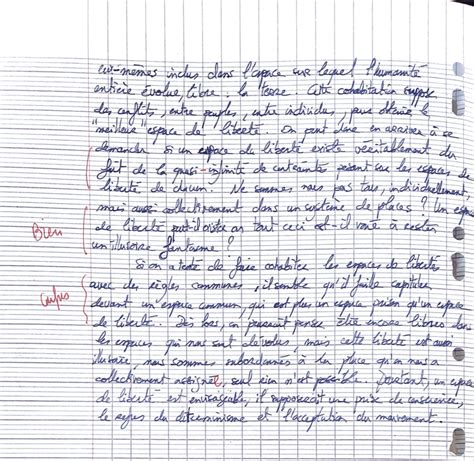 eux-mêmes inclus dans l'espace sur lequel l'humanité
entière évolue, libre : la terre. Cette cohabitation suppose
des conflits, entre peuples, entre individus, pour obtenir le
"meilleur" espace de liberté. On peut donc en arriver à se
demander si un espace de liberté existe véritablement du
fait de la quasi-infinité de contraintes pesant sur les espaces de
liberté de chacun. Ne sommes nous pas tous, individuellement,
mais aussi collectivement dans un système de places ? Un espace
de liberté peut-il exister ou tout ceci est-il voué à rester
Bien
un illusoire fantasme ?
Si on a tenté de faire cohabiter les espaces de libertés
avec des règles communes, il semble qu'il faille capituler
devant un espace commun, qui est plus un espace prison qu'un espace
de liberté. Dès lors, on pourrait penser être encore libres dans
les espaces qui nous sont dévolus, mais cette liberté est aussi
illusoire, nous sommes subordonnés à la place qu'on nous a
collectivement assignée, seul rien n'est possible. Pourtant, un espace
de liberté est envisageable, il supposerait une prise de conscience,
le refus du déterminisme et l'acceptation du mouvement.